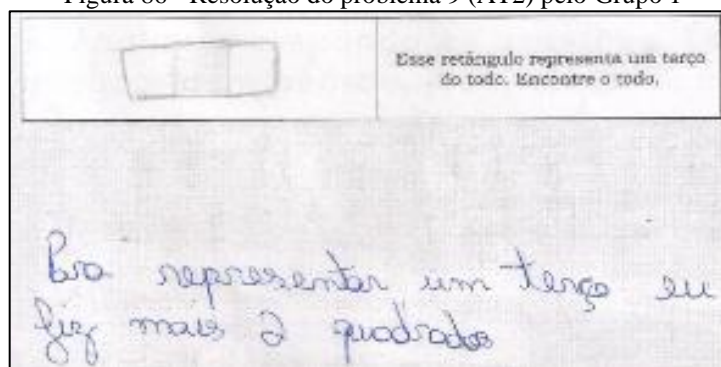 Figura 86 - Resolução do problema 9 (AT2) pelo Grupo 1
Esse retângulo representa um terço
do todo. Encontre o todo.
Pra representar um terço eu
fiz mais 2 quadrados